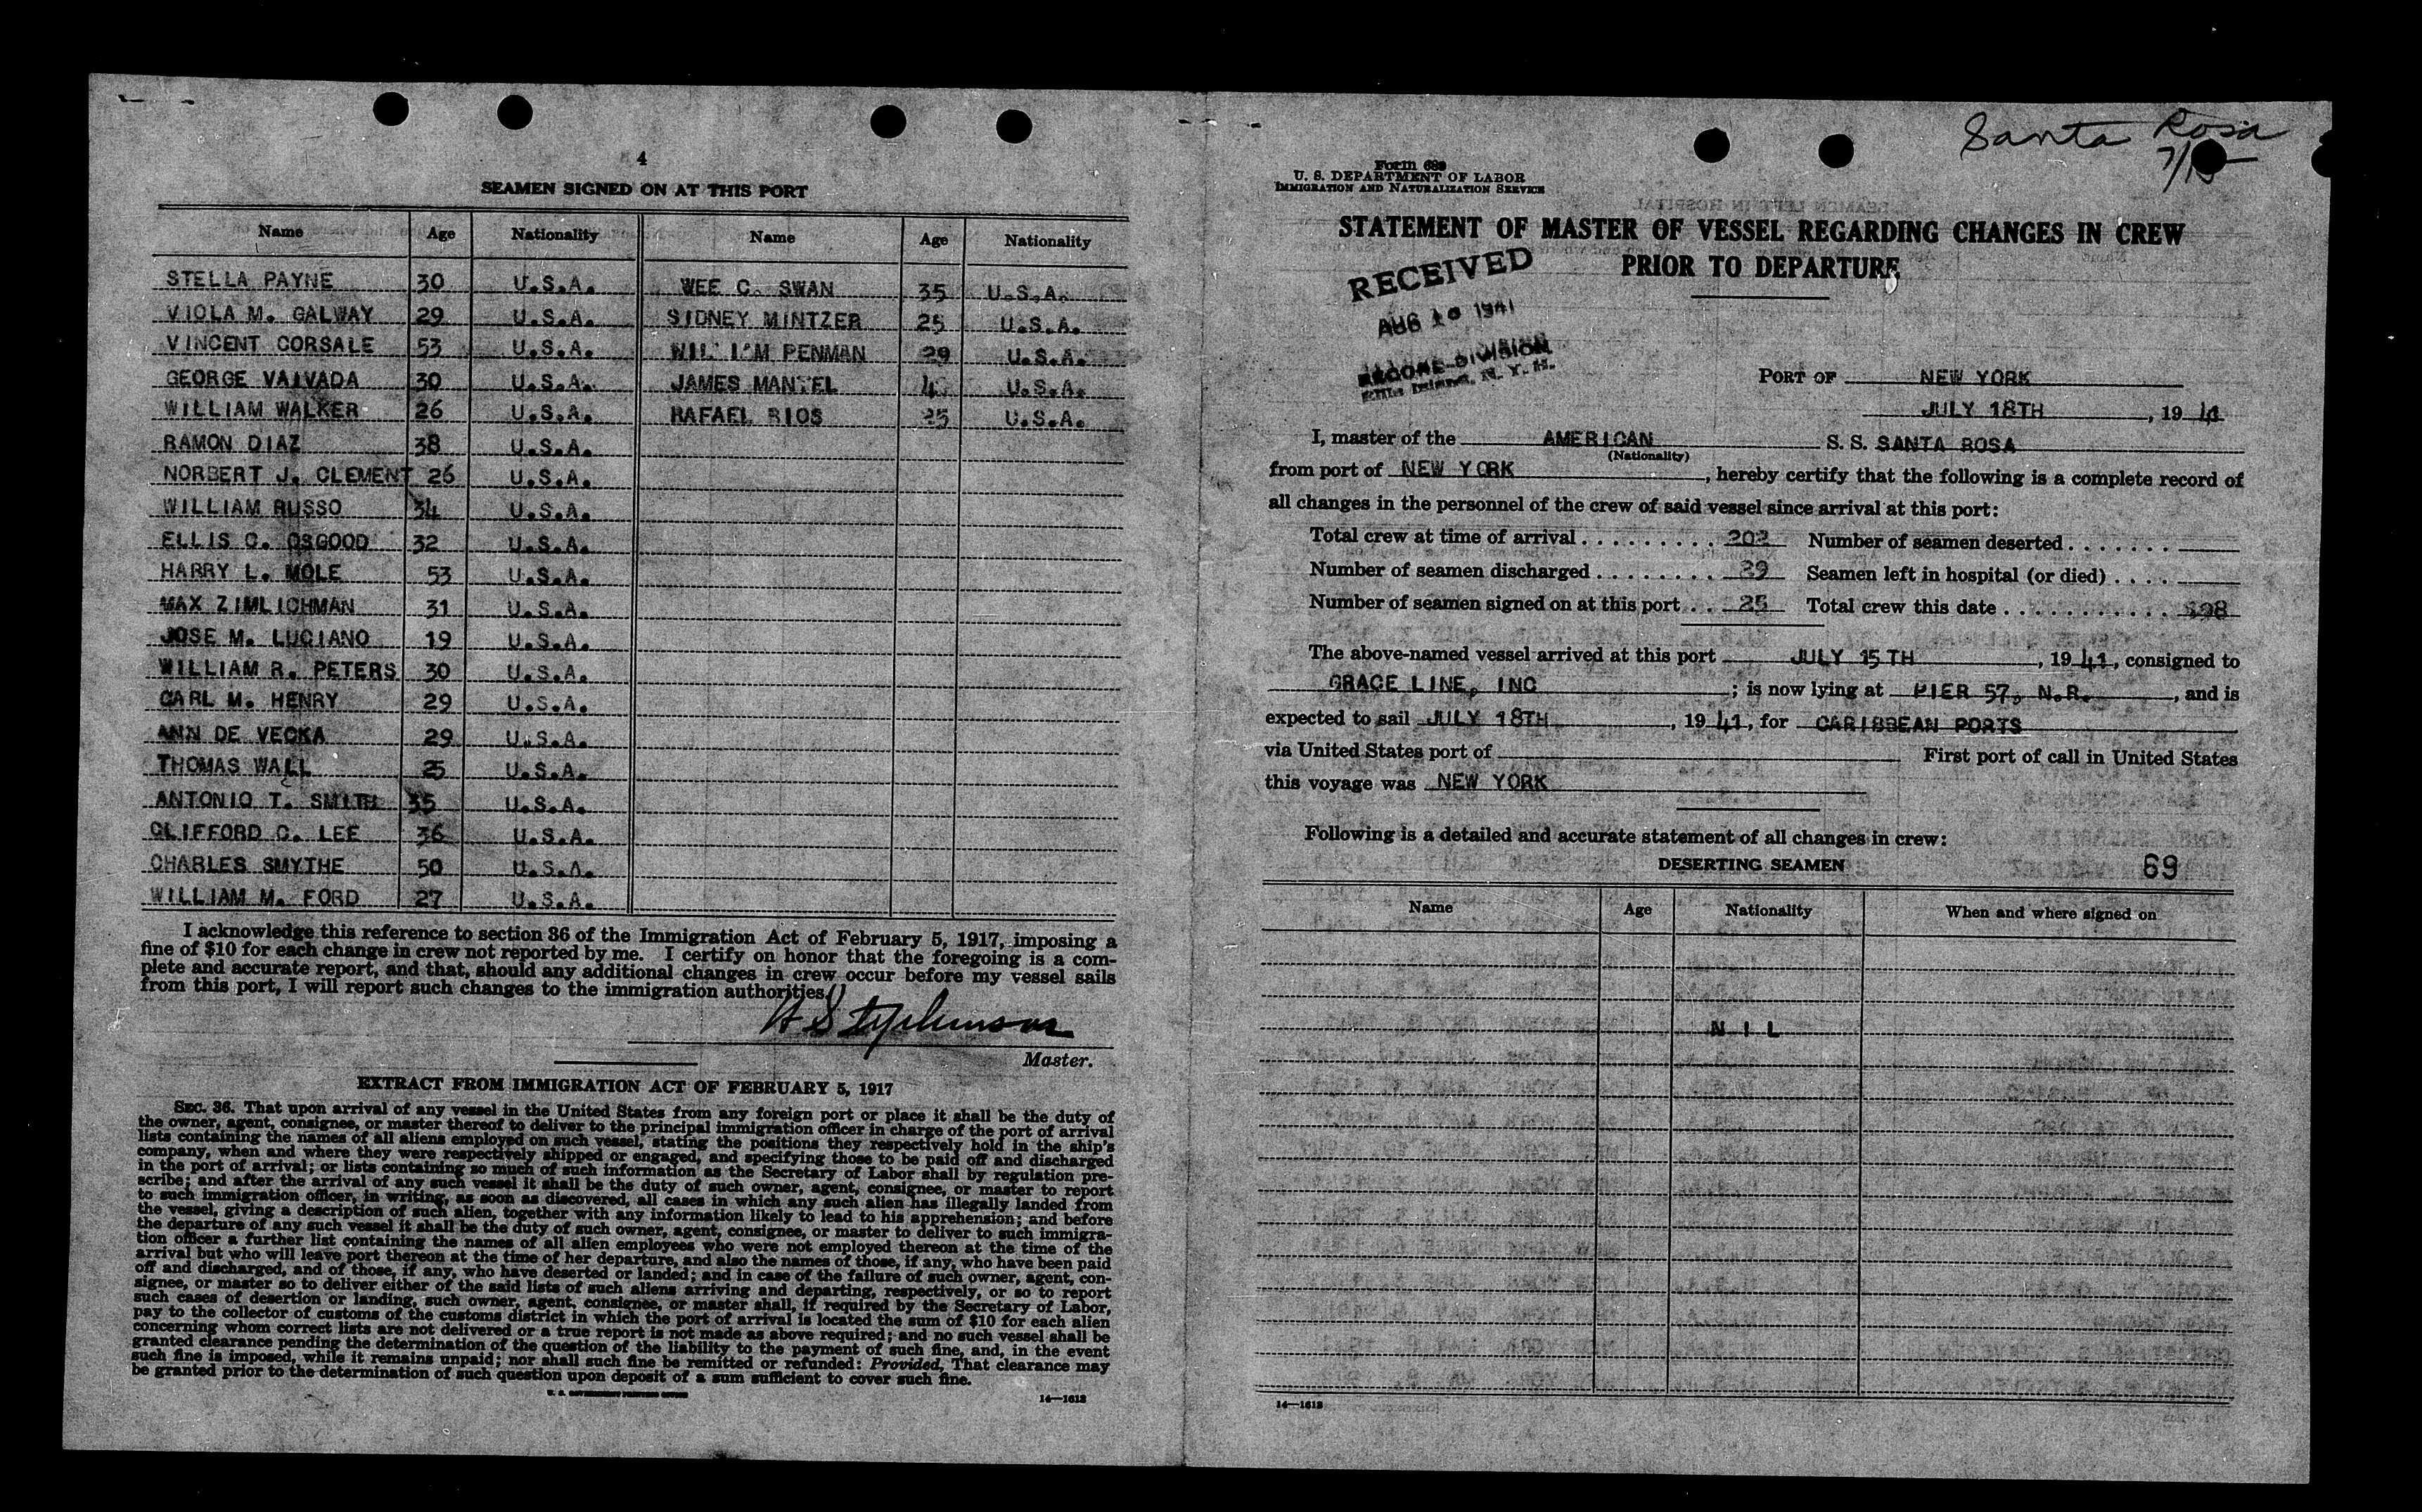 4
SEAMEN SIGNED ON AT THIS PORT
Name Age Nationality Name Age Nationality
STELLA PAYNE 30 U.S.A. WEE C. SWAN 35 U.S.A.
VIOLA M. GALWAY 29 U.S.A. SIDNEY MINTZER 25 U.S.A.
VINCENT CORSALE 53 U.S.A. PENMAN 29 U.S.A.
GEORGE VAIVADA 30 U.S.A. JAMES MANTEL U.S.A.
WILLIAM WALKER 26 U.S.A. RAFAEL RIOS 25 U.S.A.
RAMON DIAZ 38 U.S.A.
NORBERT J. CLEMENT 26 U.S.A.
WILLIAM RUSSO 34 U.S.A.
ELLIS C. OSGOOD 32 U.S.A.
HARRY L. MOLE 53 U.S.A.
MAX ZIMLICHMAN 31 U.S.A.
JOSE M. LUCIANO 19 U.S.A.
WILLIAM R. PETERS 30 U.S.A.
CARL M. HENRY 29 U.S.A.
ANN DE VECKA 29 U.S.A.
THOMAS WALL 25 U.S.A.
ANTONIO T. SMITH 35 U.S.A.
CLIFFORD C. LEE 36 U.S.A.
CHARLES SMYTHE 50 U.S.A.
WILLIAM M. FORD 27 U.S.A.
I acknowledge this reference to section 36 of the Immigration Act of February 5, 1917, imposing a
fine of $10 for each change in crew not reported by me. I certify on honor that the foregoing is a com-
plete and accurate report, and that, should any additional changes in crew occur before my vessel sails
from this port, I will report such changes to the immigration authorities.
Stephenson
Master.
EXTRACT FROM IMMIGRATION ACT OF FEBRUARY 5, 1917
SEC. 36. That upon arrival of any vessel in the United States from any foreign port or place it shall be the duty of
the owner, agent, consignee, or master thereof to deliver to the principal immigration officer in charge of the port of arrival
lists containing the names of all aliens employed on such vessel, stating the positions they respectively hold in the ship's
company, when and where they were respectively shipped or engaged, and specifying those to be paid off and discharged
in the port of arrival; or lists containing so much of such information as the Secretary of Labor shall by regulation pre-
scribe; and after the arrival of any such vessel it shall be the duty of such owner, agent, consignee, or master to report
to such immigration officer, in writing, as soon as discovered, all cases in which any such alien has illegally landed from
the vessel, giving a description of such alien, together with any information likely to lead to his apprehension; and before
the departure of any such vessel it shall be the duty of such owner, agent, consignee, or master to deliver to such immigra-
tion officer a further list containing the names of all alien employees who were not employed thereon at the time of the
arrival but who will leave port thereon at the time of her departure, and also the names of those, if any, who have been paid
off and discharged, and of those, if any, who have deserted or landed; and in case of the failure of such owner, agent, con-
signee, or master so to deliver either of the said lists of such aliens arriving and departing, respectively, or so to report
such cases of desertion or landing, such owner, agent, consignee, or master shall, if required by the Secretary of Labor,
pay to the collector of customs of the customs district in which the port of arrival is located the sum of $10 for each alien
concerning whom correct lists are not delivered or a true report is not made as above required; and no such vessel shall be
granted clearance pending the determination of the question of the liability to the payment of such fine, and, in the event
such fine is imposed, while it remains unpaid; nor shall such fine be remitted or refunded: Provided, That clearance may
be granted prior to the determination of such question upon deposit of a sum sufficient to cover such fine.
U. S. GOVERNMENT PRINTING OFFICE
14—1613
Santa Rosa
Form 689
U. S. DEPARTMENT OF LABOR
IMMIGRATION AND NATURALIZATION SERVICE
STATEMENT OF MASTER OF VESSEL REGARDING CHANGES IN CREW
PRIOR TO DEPARTURE
RECEIVED
AUG 1941
DIVISION
Ellis Island, N. Y. H.
PORT OF NEW YORK
JULY 18TH, 19 41
I, master of the AMERICAN S. S. SANTA ROSA
(Nationality)
from port of NEW YORK, hereby certify that the following is a complete record of
all changes in the personnel of the crew of said vessel since arrival at this port:
Total crew at time of arrival 202 Number of seamen deserted
Number of seamen discharged 29 Seamen left in hospital (or died)
Number of seamen signed on at this port 25 Total crew this date 198
The above-named vessel arrived at this port JULY 15TH, 19 41, consigned to
GRACE LINE, INC; is now lying at PIER 57, N.R., and is
expected to sail JULY 18TH, 19 41, for CARIBBEAN PORTS
via United States port of First port of call in United States
this voyage was NEW YORK
Following is a detailed and accurate statement of all changes in crew:
DESERTING SEAMEN 69
Name Age Nationality When and where signed on
N I L
14—1613